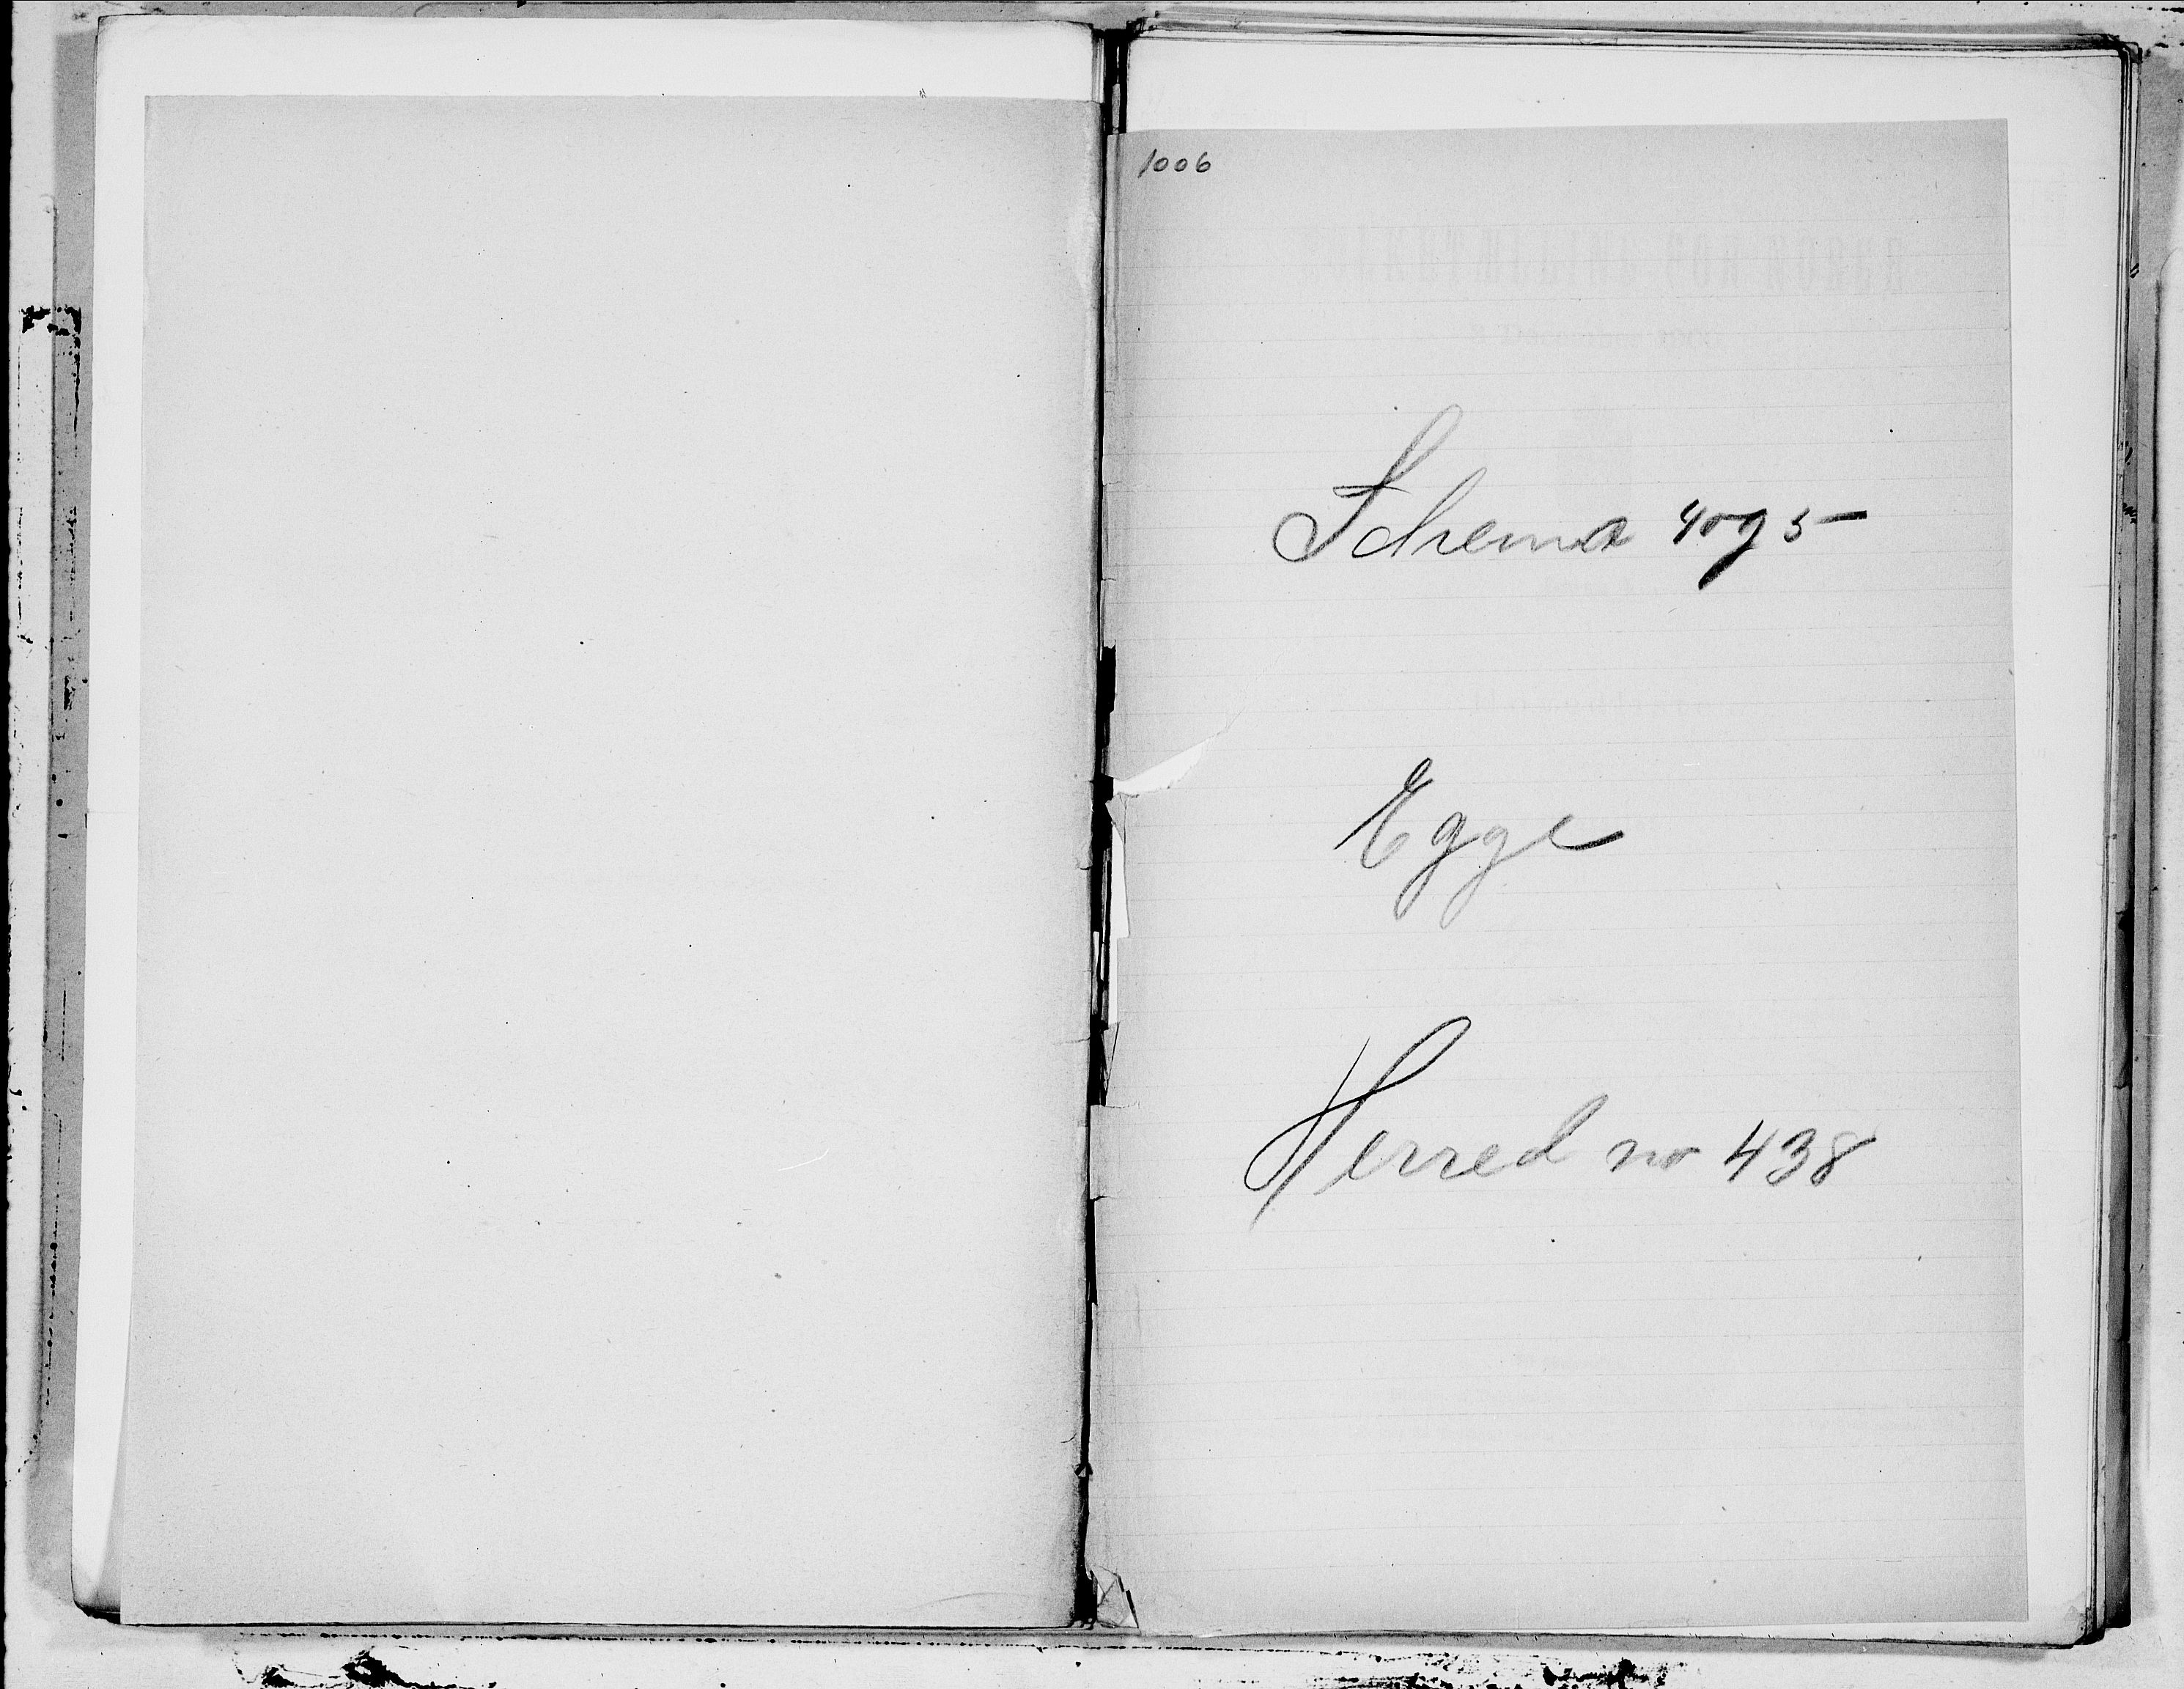 1006
Schema 4 og 5
Egge
Herred no 438